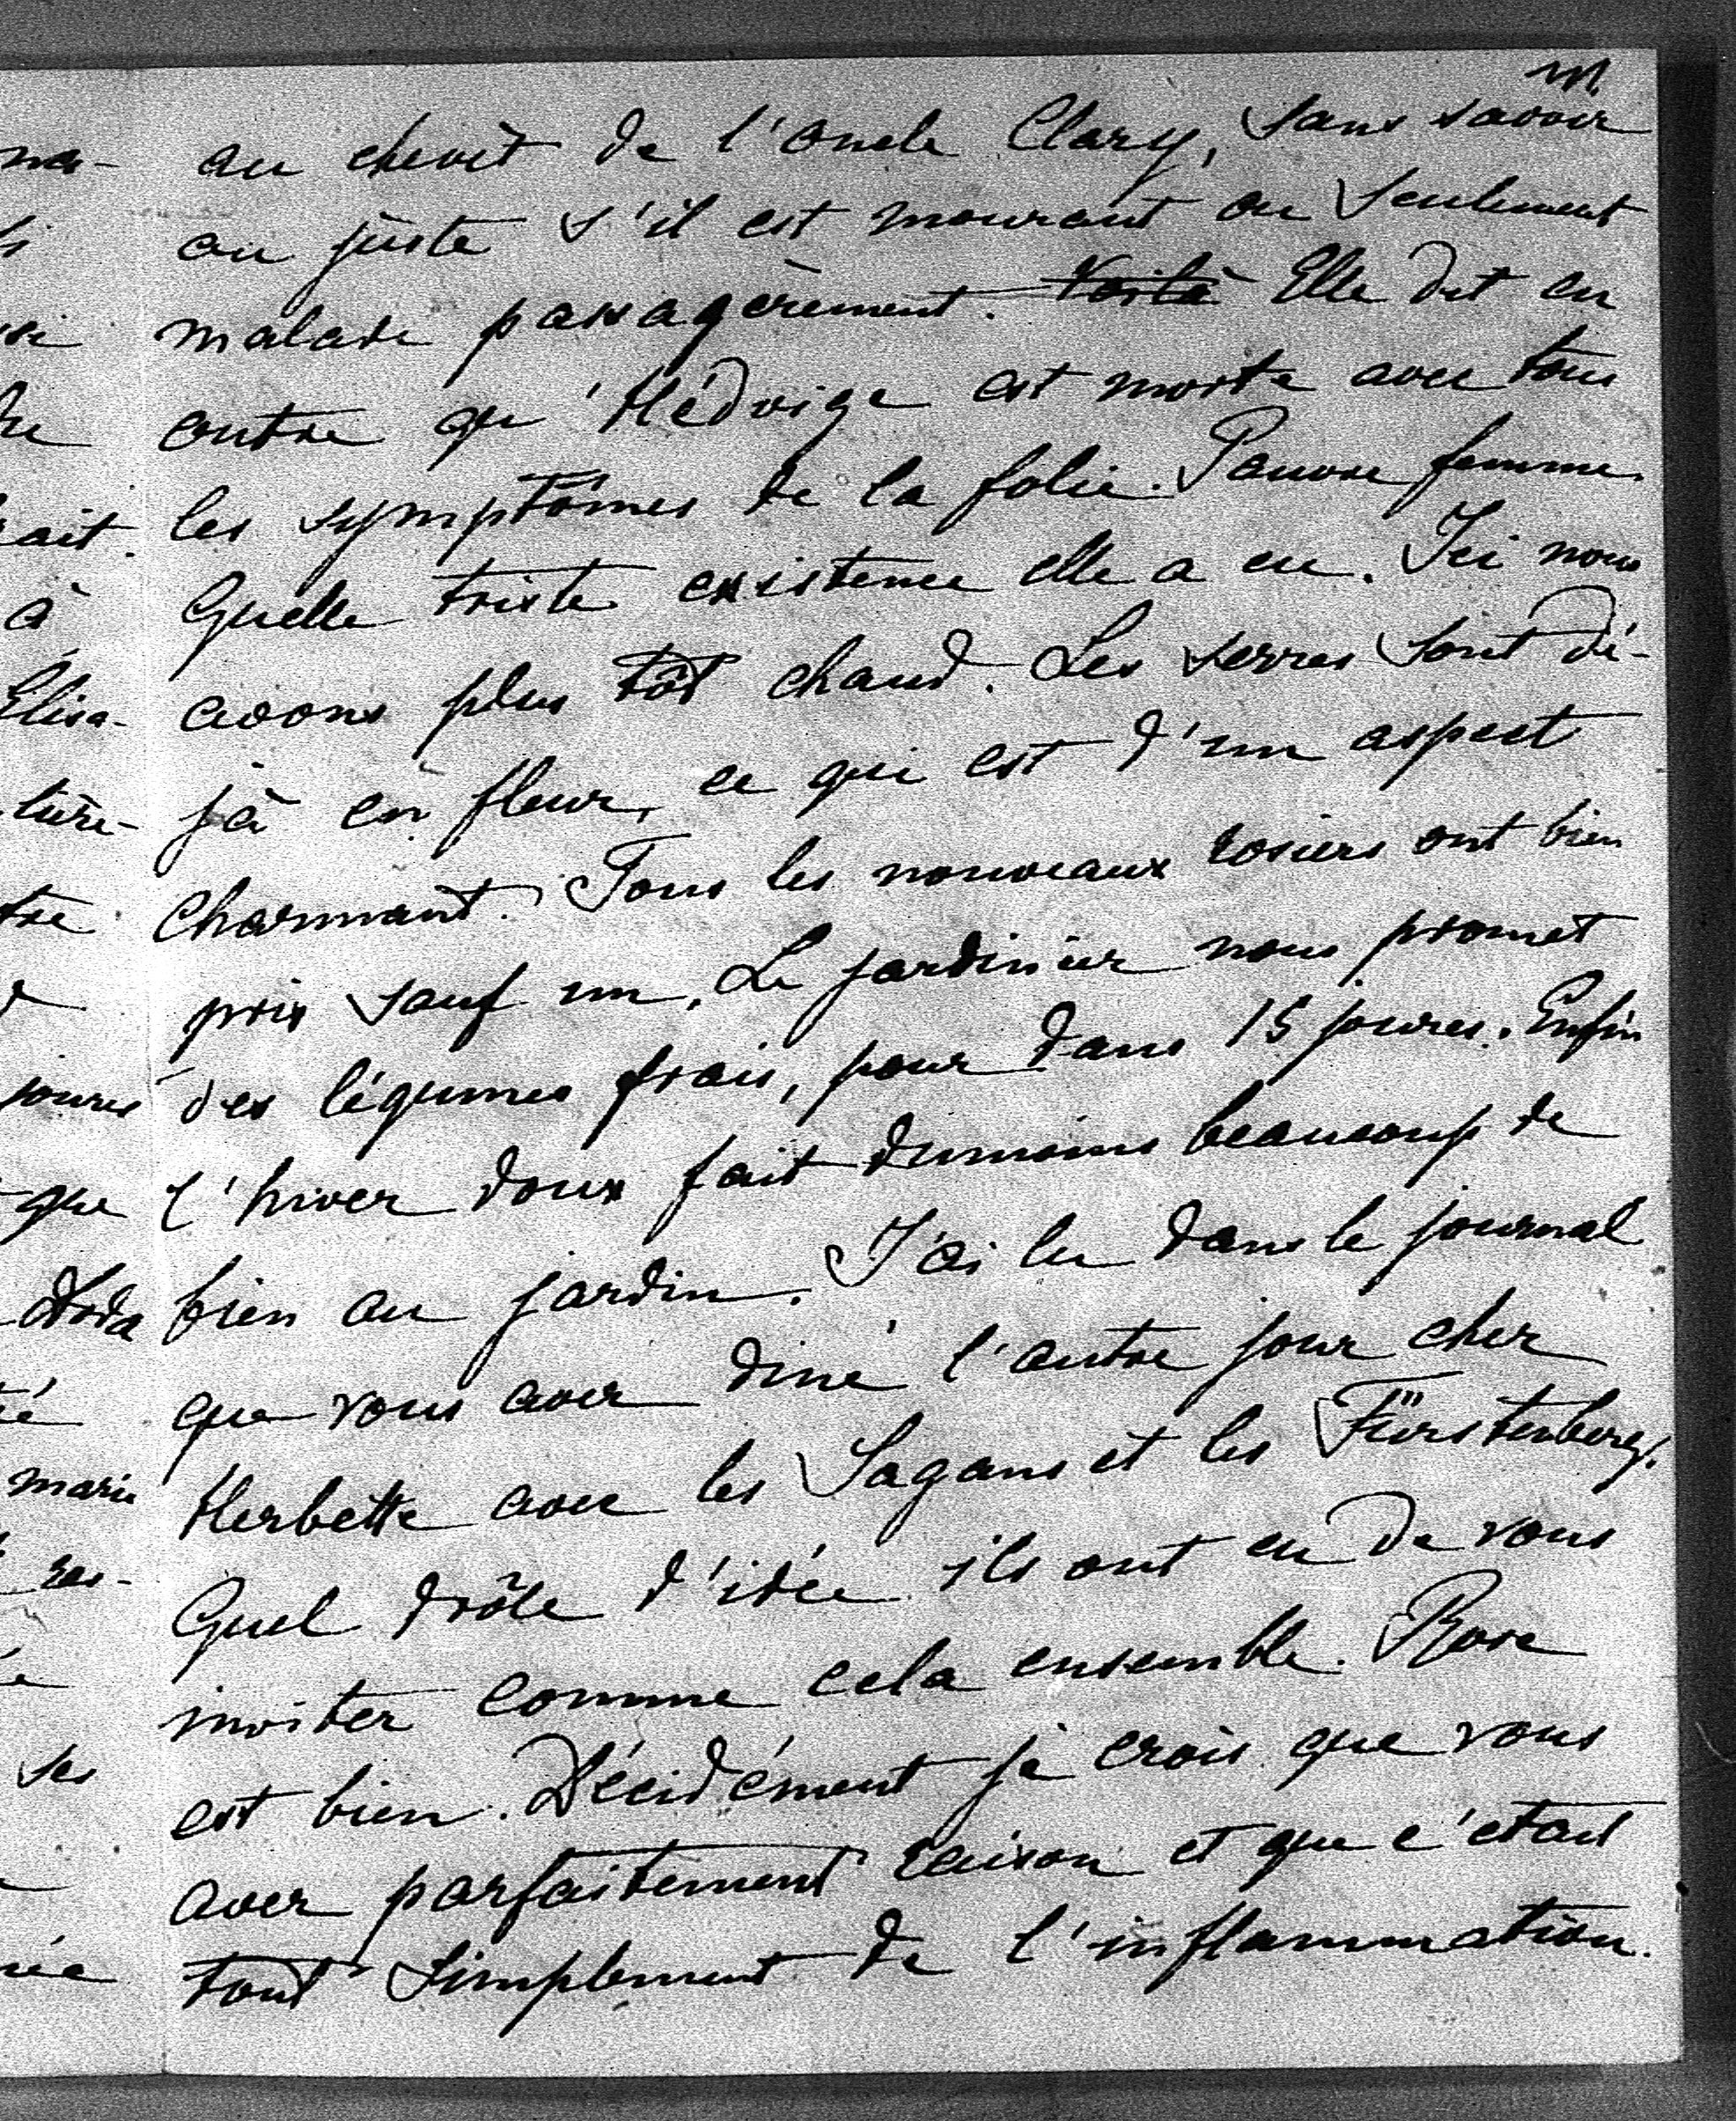 au chevet de l'oncle Clary, sans savoir
au juste s'il est mourant ou seulement
malade passagèrement. Voilà Elle dit en
outre qu'Hédvige est morte avec tous
les symptômes de la folie. Pauvre femme
Quelle triste existence elle a eu. Ici nous
avons plus tôt chaud. Les serres sont dé-
jà en fleur, ce qui est d'un aspect
charmant. Tous les nouveaux rosiers ont bien
pris sauf un. Le jardinier nous promet
des légumes frais, pour dans 15 jours. Enfin
l'hiver doux fait dumoins beaucoup de
bien au jardin. J'ai lu dans le journal
que vous avez diné l'autre jour chez
Herbette avec les Sagans et les Fürstenberg.
Quel drôle d'idée ils ont eu de vous
inviter comme cela ensemble. Rose
est bien. Décidément je crois que vous
avez parfaitement raison et que c'était
tout simplement de l'inflammation.